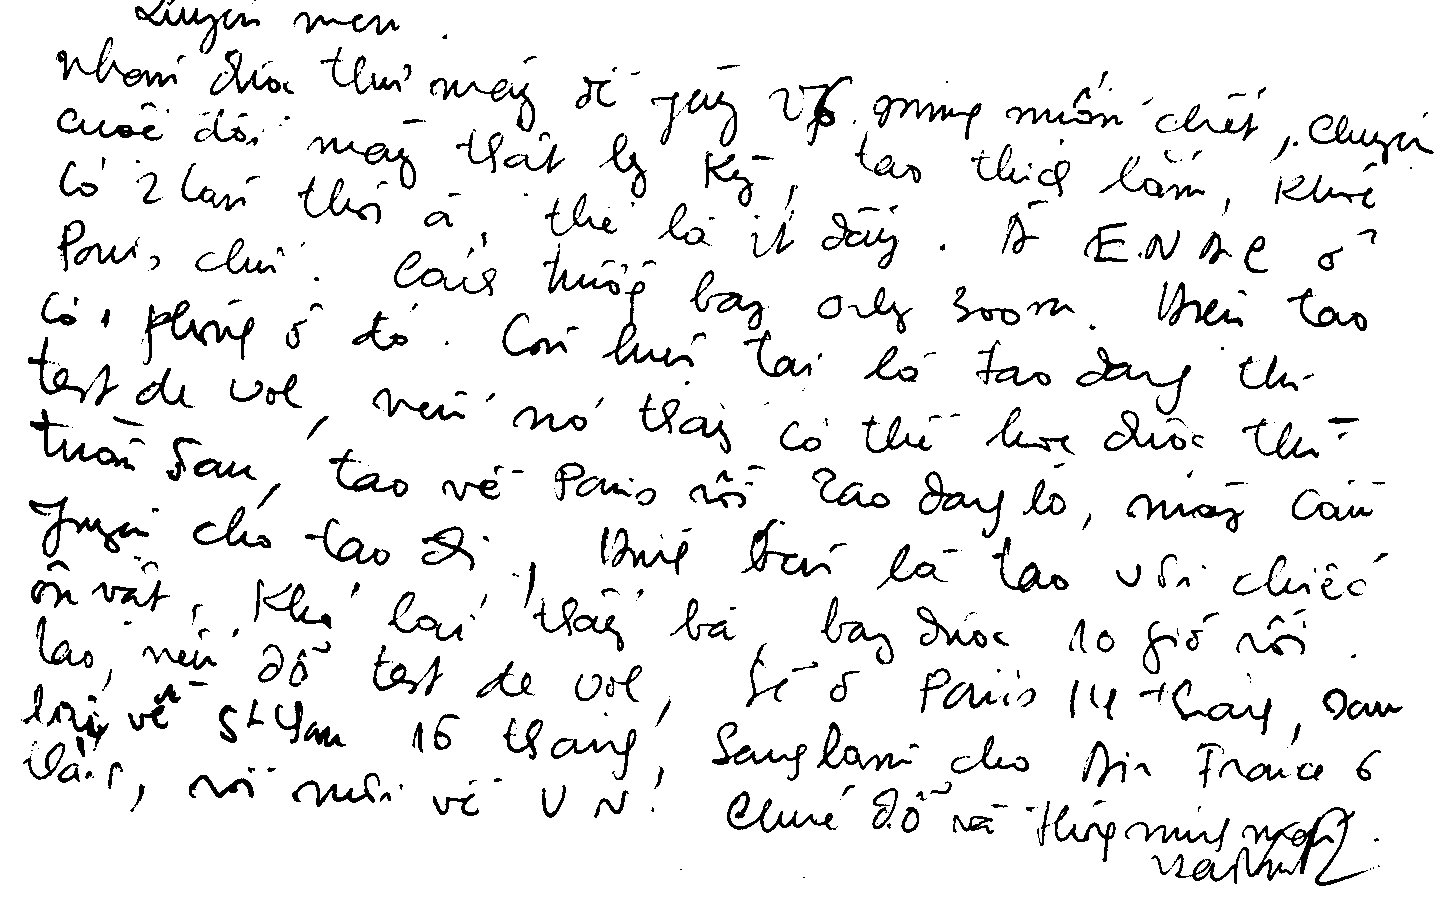 Luyến mến.
Nhận được thư mày để gây vợ. mừng muốn chết, chuyện
cuộc đời mày thật ly kỳ, tao thích lắm, khoẻ
có 2 lần thôi à, thế là ít đấy. À E.N.A.C ở
Paris chứ. Cách trường bay Orly 300m. Hiện tao
có 1 phòng ở đó. Còn hiện tại là tao đang thi
test de vol, nếu nó thấy có thể học được thì
tuần sau, tao về Paris rồi. Tao đang lo, mày cầu
nguyện cho tao đi, Hình bên là tao với chiếc
ôn vật, Khó lái thấy bà, bay được 10 giờ rồi.
Tao, nếu đỗ test de vol, sẽ ở Paris 14 tháng, sau
lại về St Yan 16 tháng, sang làm cho Air France 6
tháng, rồi mới về VN. Chúc đỗ và thông minh mãi.